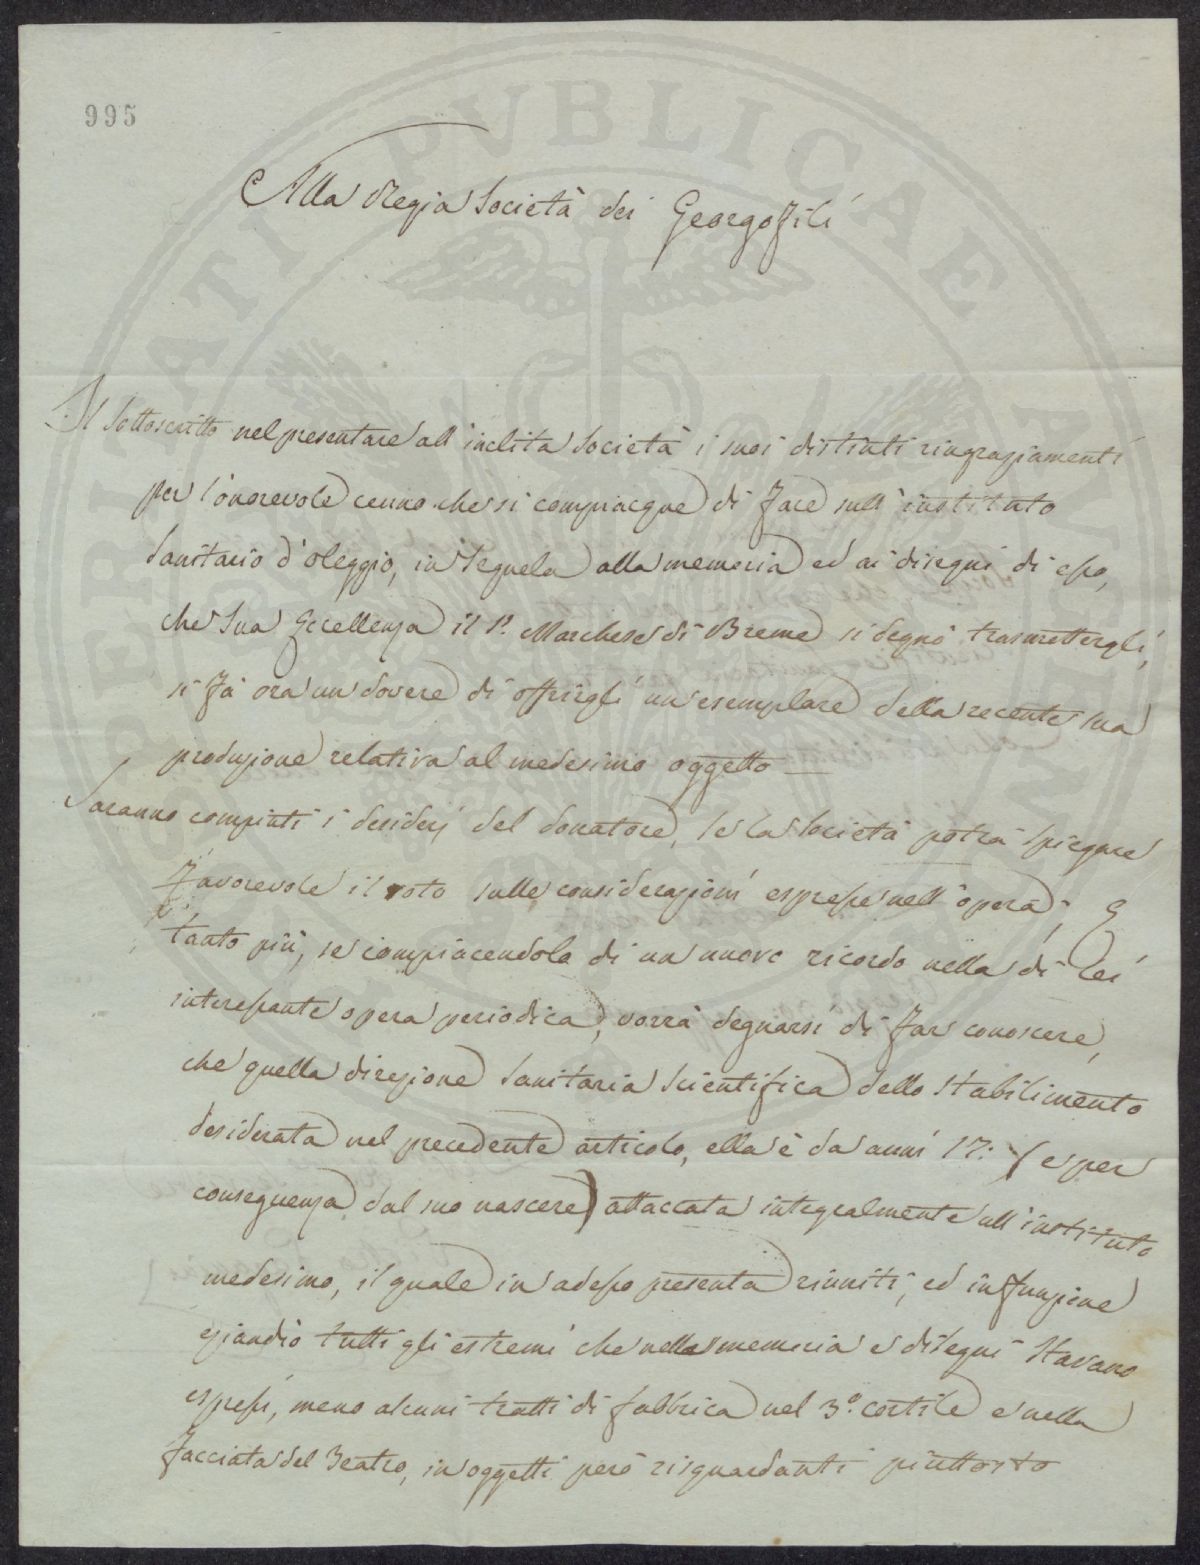 995
Alla Regia Società dei Georgofili
Il Sottoscritto nel presentare all'inclita Società i suoi distinti ringraziamenti
per l'onorevole cenno che si compiacque di fare sull'instituto
Sanitario d'Oleggio, in seguela alla memoria ed ai disegni di esso,
che Sua Eccellenza il S.r Marchese di Breme si degnò trasmettergli,
si fà ora un dovere di offrirgli un esemplare della recente sua
produzione relativa al medesimo oggetto —
Saranno compiuti i desiderj del donatore, se la Società potrà spiegare
favorevole il voto sulle considerazioni espresse nell'opera; E
tanto più, se compiacendola di un nuovo ricordo nella di Lei
interessante opera periodica, vorrà degnarsi di far conoscere,
che quella direzione Sanitaria Scientifica dello Stabilimento
desiderata nel precedente articolo, ella è da anni 17: (e per
conseguenza dal suo nascere) attaccata integralmente all'instituto
medesimo, il quale in adesso presenta riuniti, ed in funzione
eziandio tutti gli estremi che nella memoria e disegni stavano
espressi, meno alcuni tratti di fabbrica nel 3.° cortile e nella
facciata del Teatro, in oggetti però risguardanti piuttosto
PVBLICAE